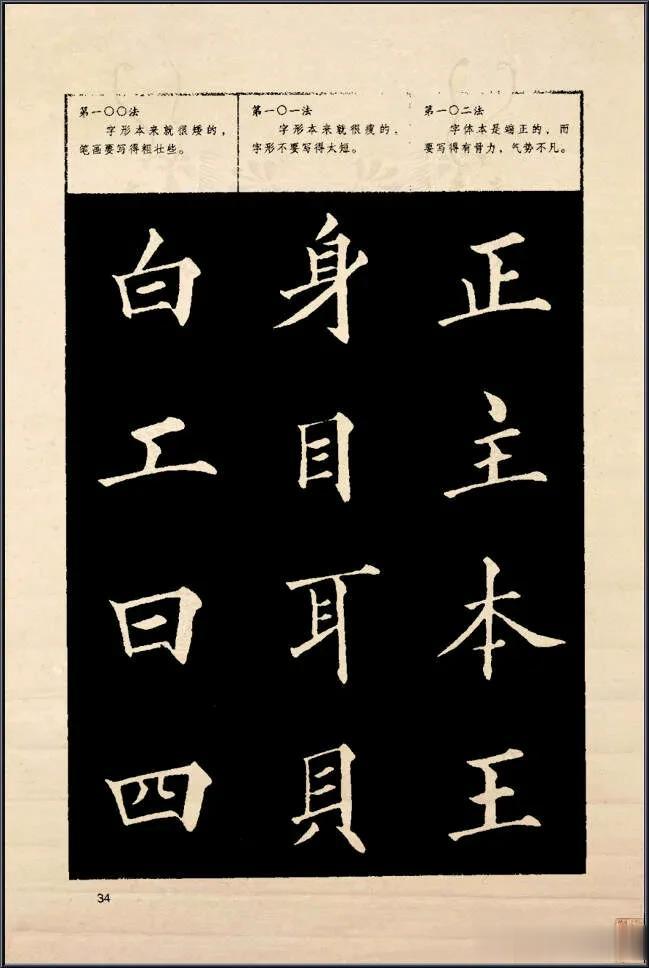 第一〇〇法
字形本来就很矮的，
笔画要写得粗壮些。
第一〇一法
字形本来就很瘦的，
字形不要写得太短。
第一〇二法
字体本是端正的，而
要写得有骨力，气势不凡。
白 身 正
工 目 主
曰 耳 本
四 貝 王
34